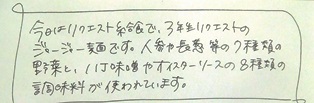 今日はリクエスト給食で、3年生リクエストの
ジャージャー麺です。人参や長葱等の7種類の
野菜と、八丁味噌やオイスターソースの8種類の
調味料が使われています。